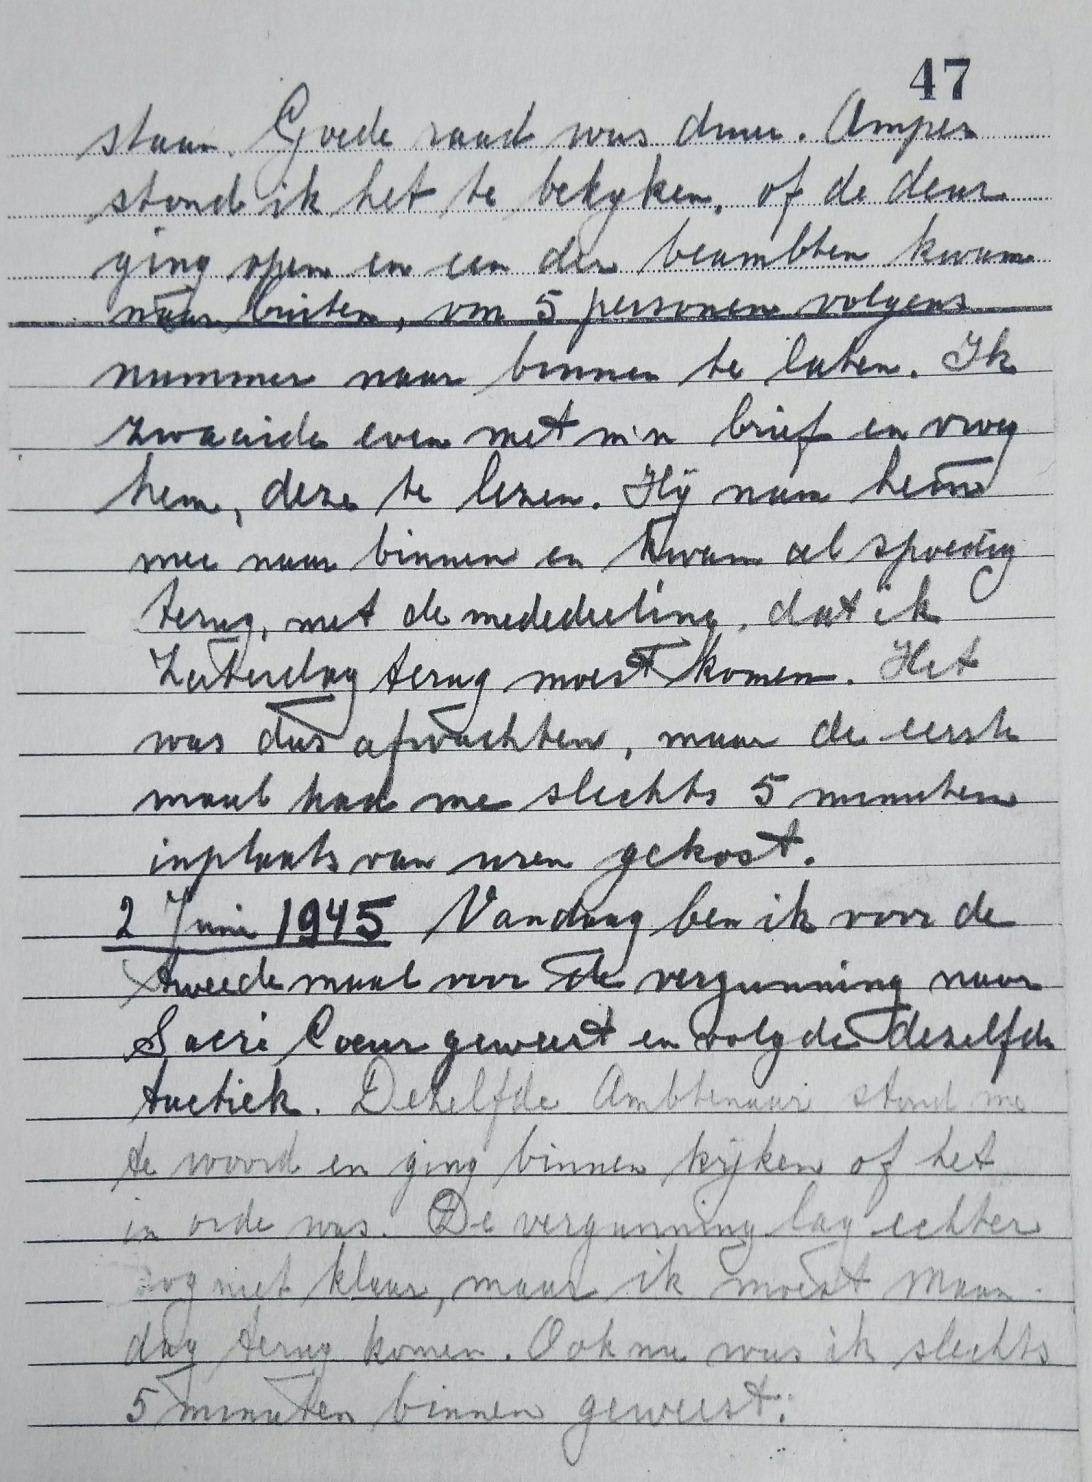 47
staan. Goede raad was duur. Amper
stond ik het te bekyken, of de deur
ging open en een der beambten kwam
naar buiten, om 5 personen volgens
nummer naar binnen te laten. Ik
zwaaide even met m'n brief en vroeg
hem, deze te lezen. Hij nam hem
mee naar binnen en kwam al spoedig
terug, met de mededeeling, dat ik
Zaterdag terug moest komen. Het
was dus afwachten, maar de eerste
maal had me slechts 5 minuten
inplaats van uren gekost.
2 Juni 1945 Vandaag ben ik voor de
tweede maal voor de vergunning naar
Sacré Coeur geweest en volgde dezelfde
tactiek. Dezelfde Ambtenaar stond me
te woord en ging binnen kijken of het
in orde was. De vergunning lag echter
nog niet klaar, maar ik moest Maan-
dag terug komen. Ook nu was ik slechts
5 minuten binnen geweest.